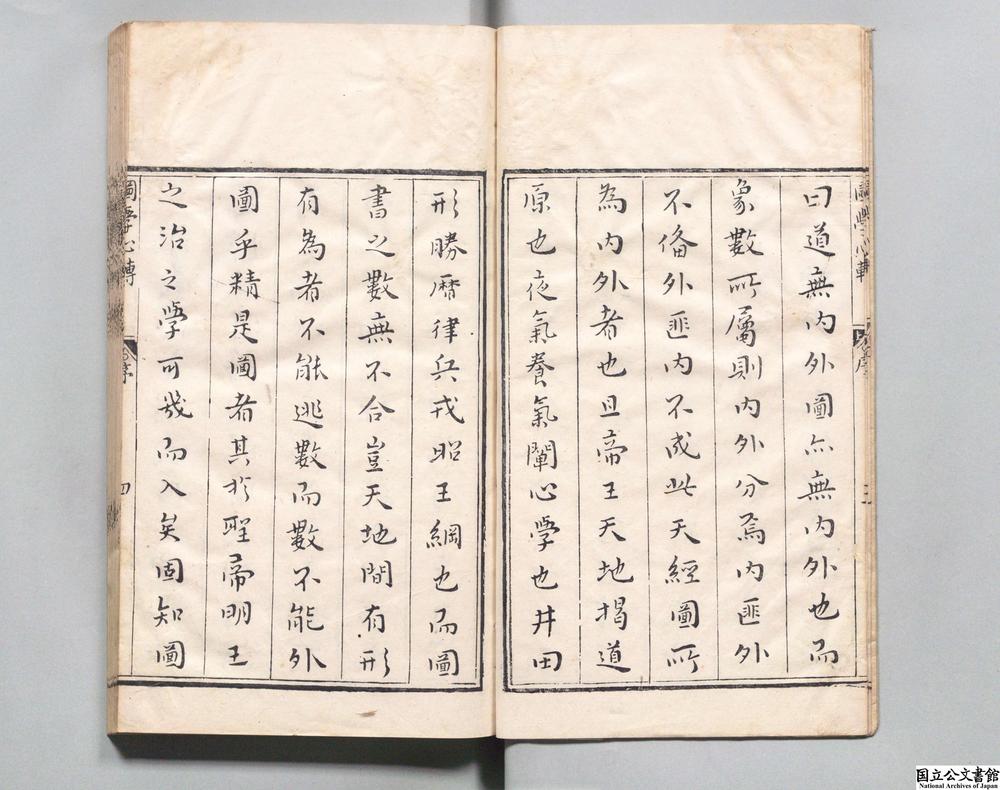 曰道無內外圖亦無內外也而
象數所屬則內外分焉內匪外
不備外匪内不成此天經圖所
為內外者也且帝王天地揭道
原也夜氣養氣闡心學也井田
形勝曆律兵戎昭王綱也而圖
書之數無不合豈天地間有形
有為者不能逃數而數不能外
圖乎精是圖者其於聖帝明王
之治之學可幾而入矣固知圖
圖學心轉
序
三
四
国立公文書館
National Archives of Japan